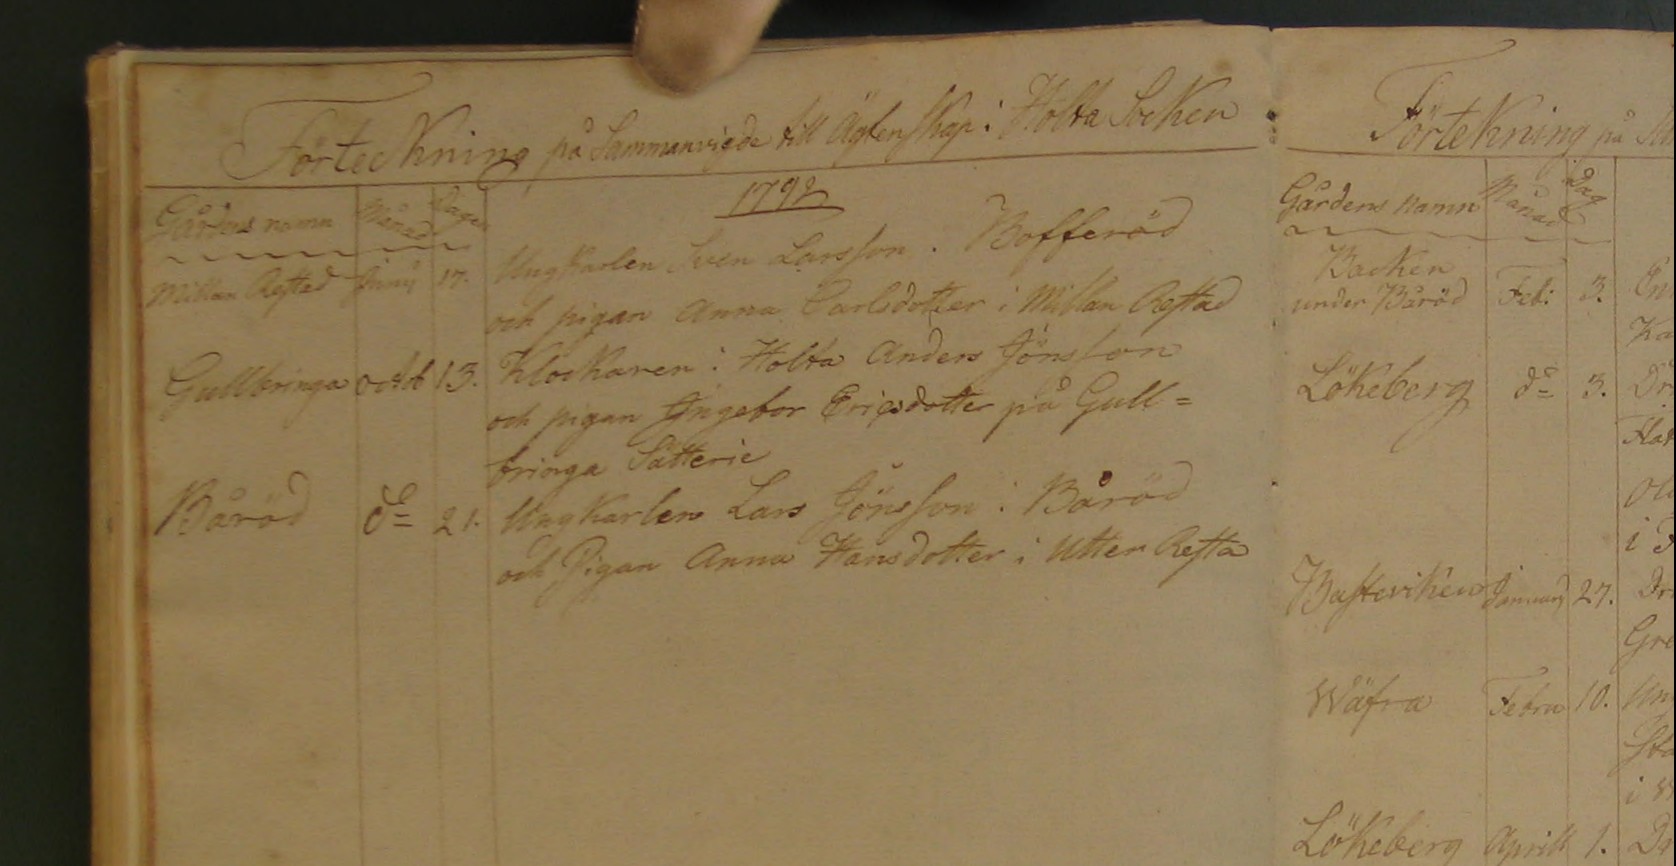 Förteckning på Sammanvigde till Ägtenskap i Holta Socken
Gårdens namn Månad Dagen
1792
Millan Restad Junij 17. Ungkarlen Sven Larsson i Bofferöd
och pigan Anna Carlsdotter i Millan Restad
Gullbringa octob 13. Klockaren i Holta Anders Jönsson
och pigan Ingebor Ericsdotter på Gull=
bringa Sätterie
Båröd do 21. Ungkarlen Lars Jönsson i Båröd
och Pigan Anna Hansdotter i Utter Resta
Förtekning på
Gårdens namn Månad Dag
Backen
under Båröd Feb: 3.
Lökeberg do 3.
Basteviken Januarij 27.
Wäfra Febru 10.
Lökeberg Aprill 1.